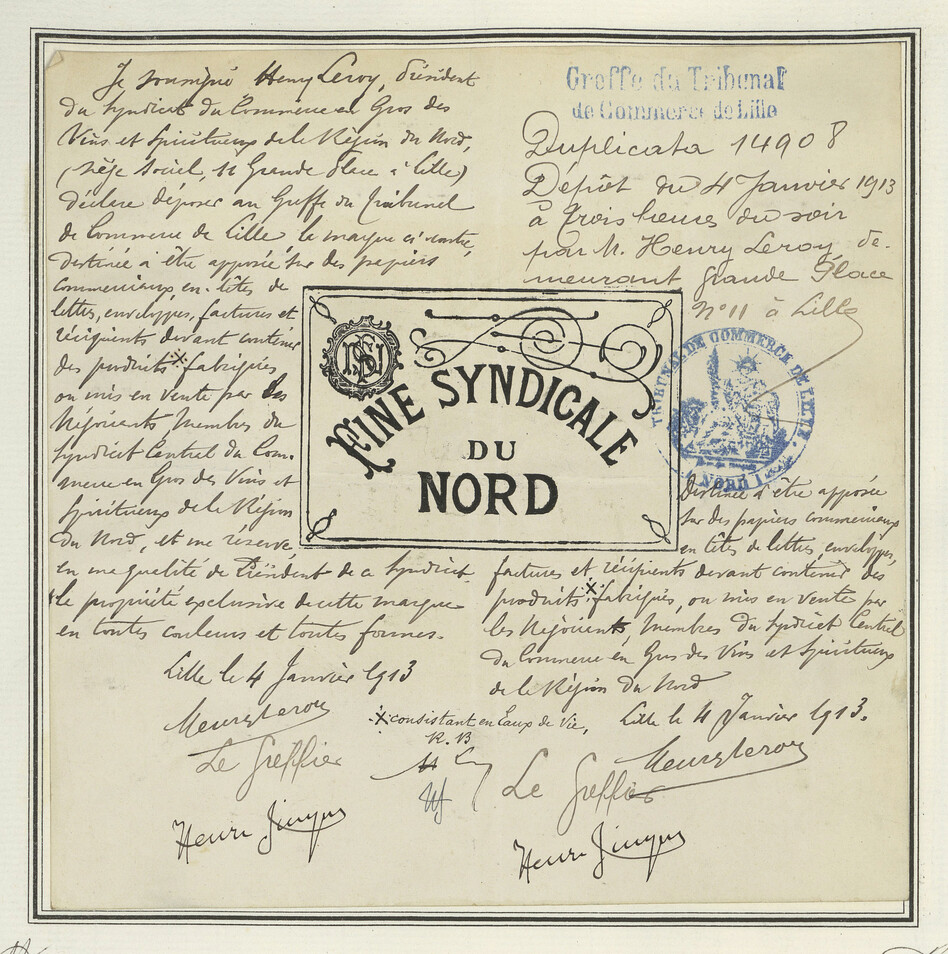 Je soussigné Henry Leroy, Président
du Syndicat du Commerce en Gros des
Vins et Spiritueux de la Région du Nord,
(siège social, 11 Grande Place à Lille)
déclare déposer au Greffe du Tribunal
de Commerce de Lille la marque ci-contre,
destinée à être apposée sur des papiers
commerciaux en-têtes de
lettres, enveloppes, factures et
récipients devant contenir
des produits X fabriqués
ou mis en vente par les
Négociants Membres du
Syndicat Central du Com-
merce en Gros des Vins et
Spiritueux de la Région
du Nord, et me réserve,
en ma qualité de Président de ce Syndicat
la propriété exclusive de cette marque
en toutes couleurs et toutes formes.
Lille le 4 Janvier 1913
Henry Leroy
Le Greffier
Henri
Greffe du Tribunal
de Commerce de Lille
Duplicata 14908
Dépôt du 4 Janvier 1913
à trois heures du soir
par M. Henry Leroy de-
meurant grande Place
N° 11 à Lille
FINE SYNDICALE
DU
NORD
TRIBUNAL DE COMMERCE DE LILLE
NORD
Destinée à être apposée
sur des papiers commerciaux
en têtes de lettres, enveloppes,
factures et récipients devant contenir des
produits X fabriqués, ou mis en vente par
les Négociants, Membres du Syndicat Central
du Commerce en Gros des Vins et Spiritueux
de la Région du Nord
Lille le 4 Janvier 1913.
X consistant en Eaux de Vie,
R. B
Henry Leroy
Le Greffier
Henri